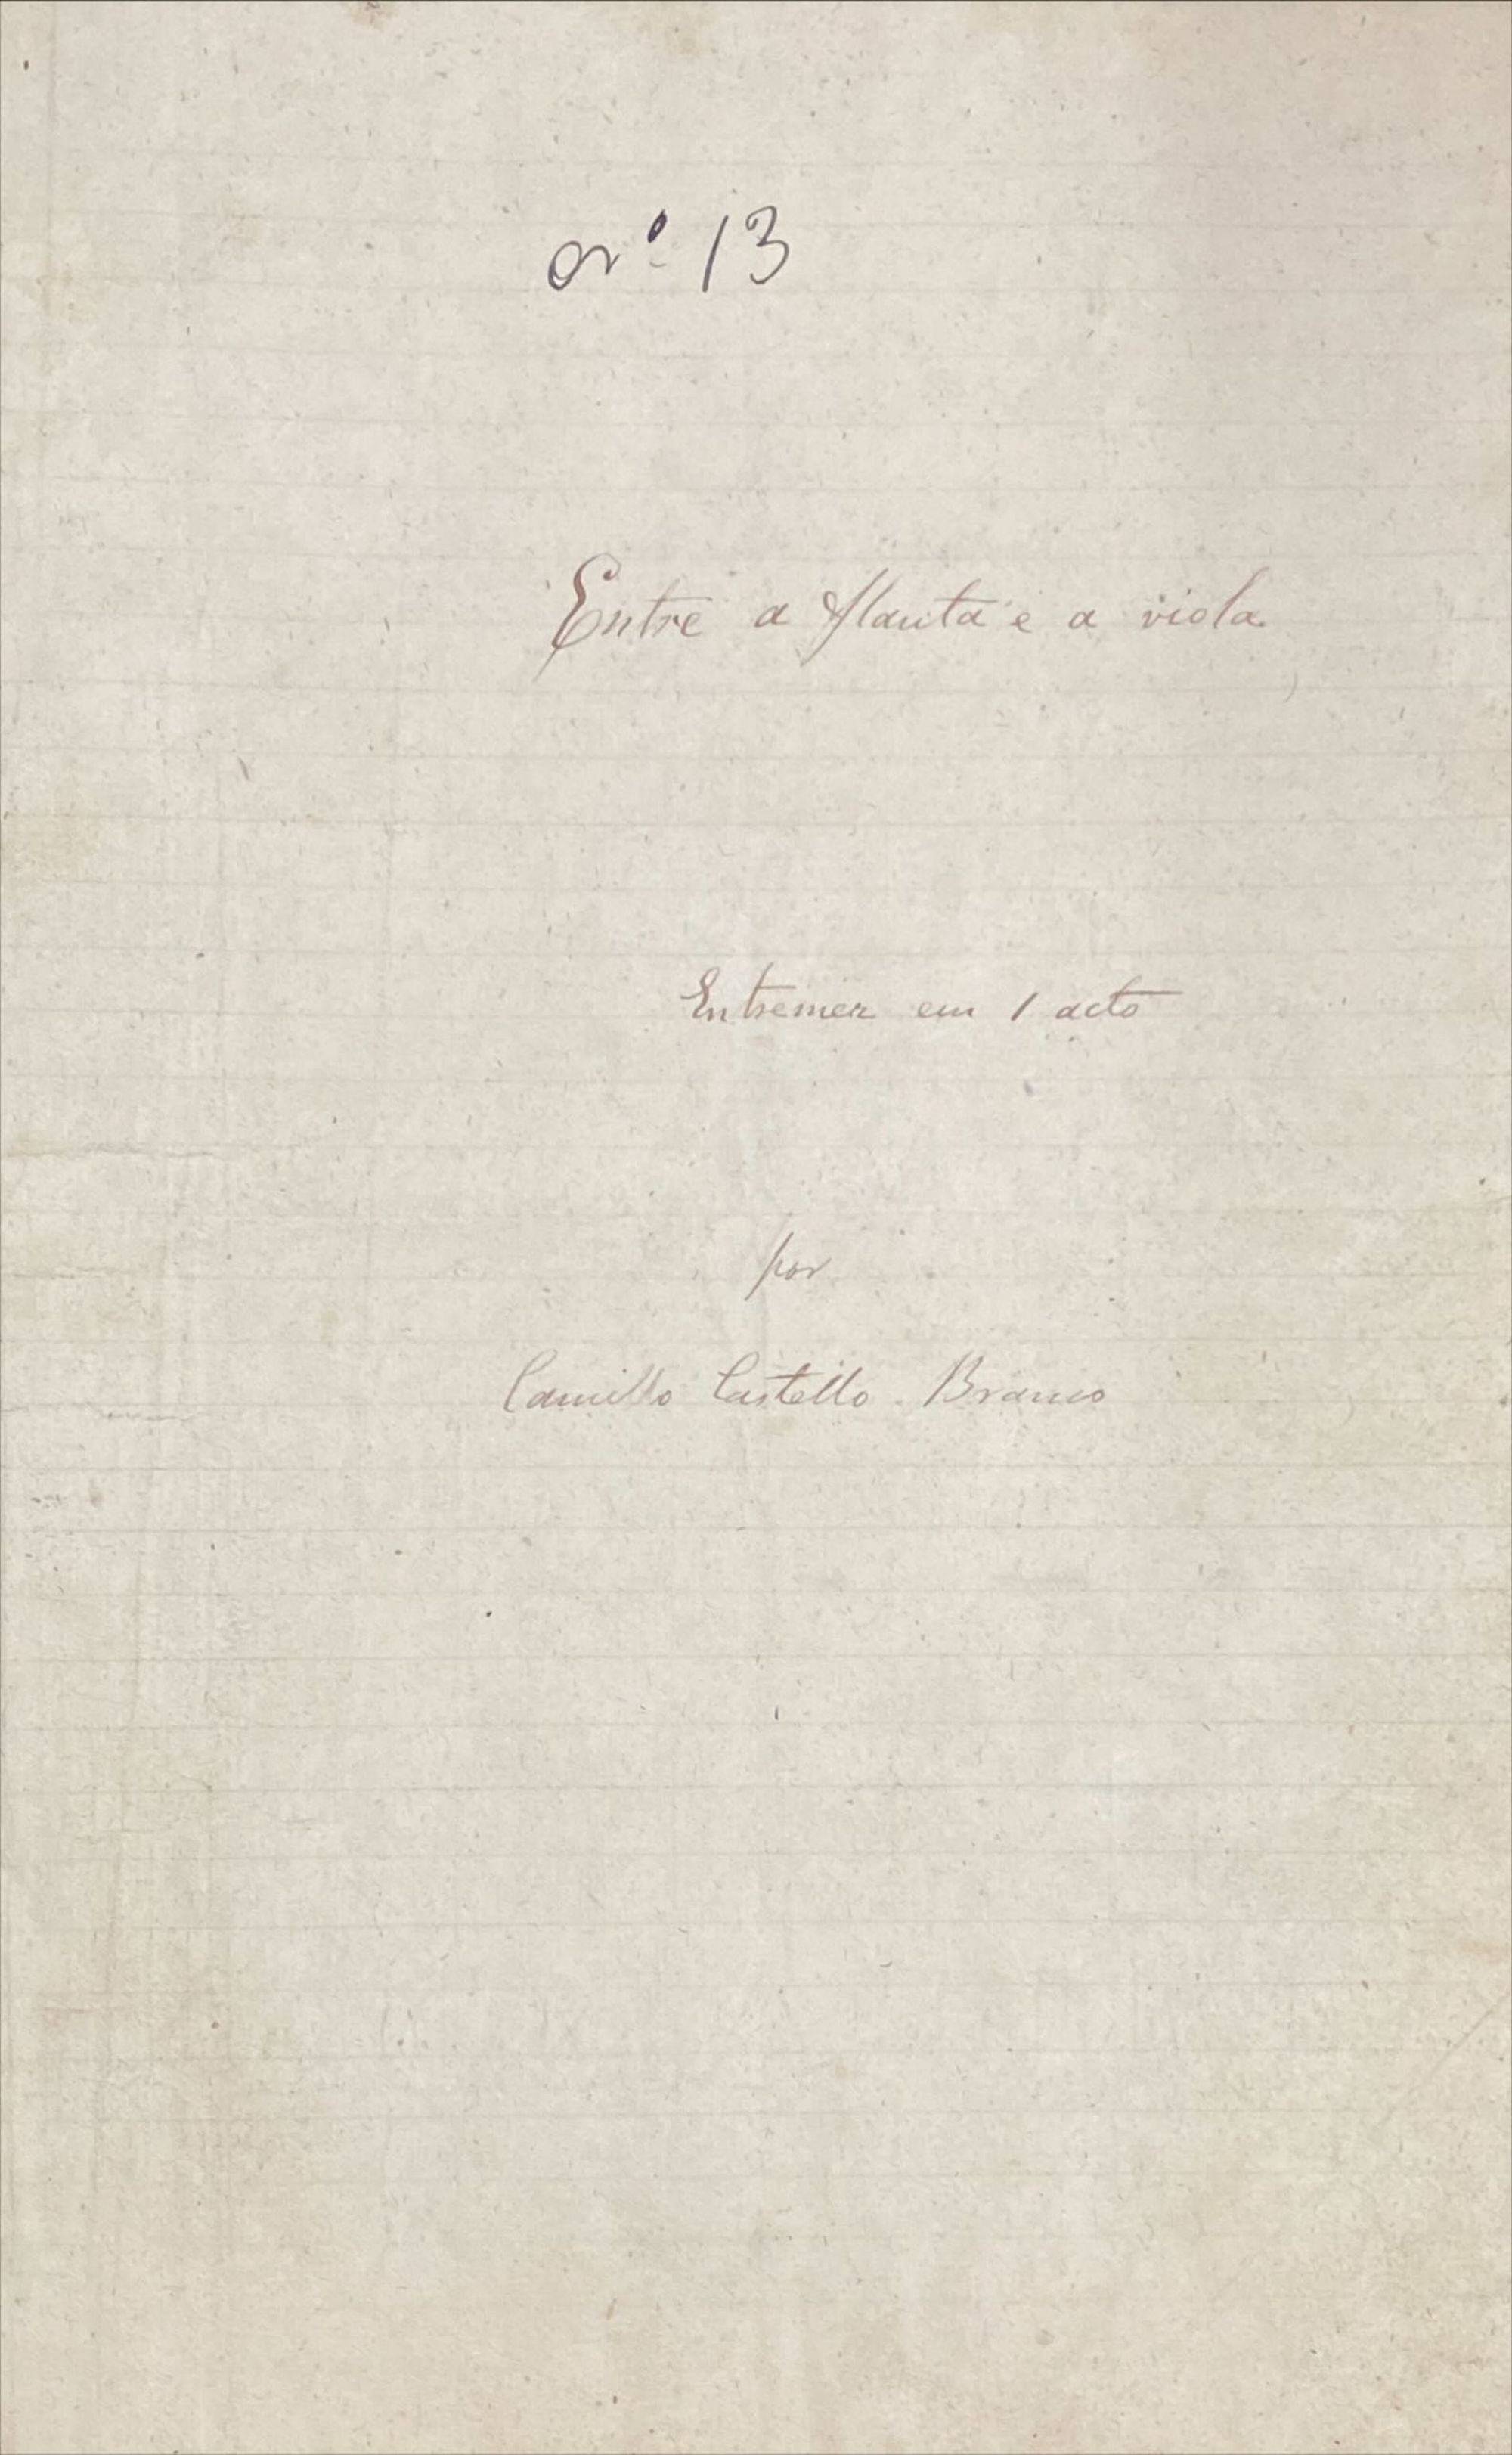 nº 13
Entre a flauta e a viola
Entremez em 1 acto
por
Camillo Castello Branco